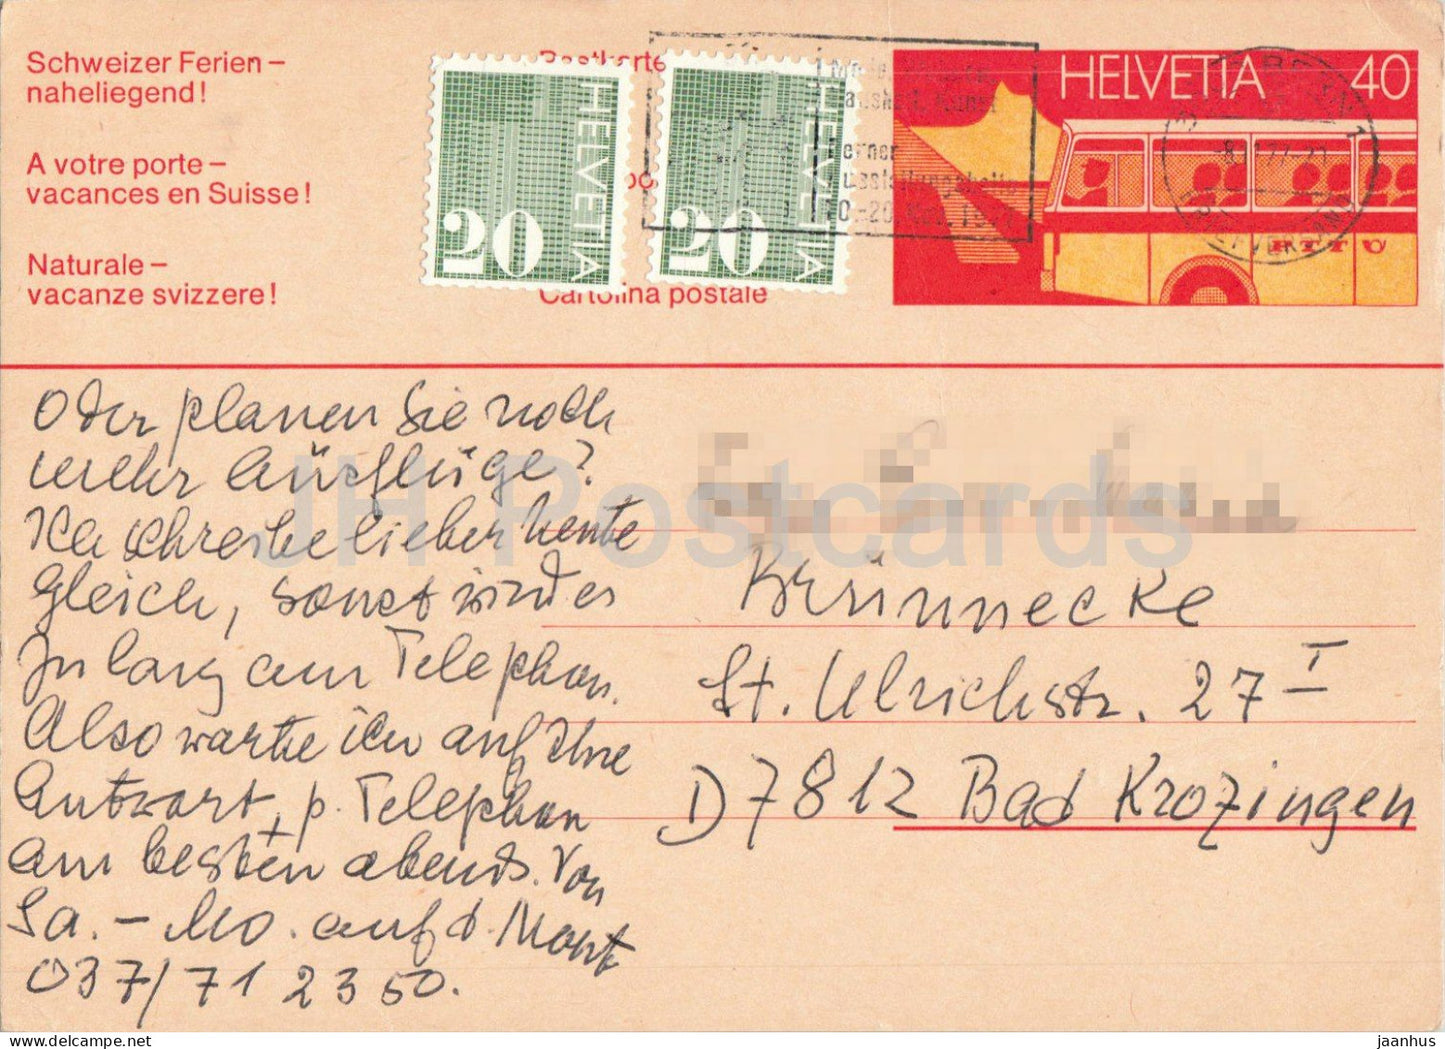 Schweizer Ferien –
naheliegend!
A votre porte –
vacances en Suisse!
Naturale –
vacanze svizzere!
Postkarte
Cartolina postale
HELVETIA
20
HELVETIA
20
HELVETIA 40
Oder planen Sie noch
mehr Ausflüge?
Ich schreibe lieber heute
gleich, sonst wird es
zu lang am Telephon.
Also warte ich auf Ihre
Antwort, p. Telephon
am besten abends. Von
Sa. – Mo. auf d. Mont
037/71 23 50.
Brünnecke
St. Ulrichstr. 27 I
D 7812 Bad Krozingen
JH Postcards
www.hippostcard.com
jaanhus